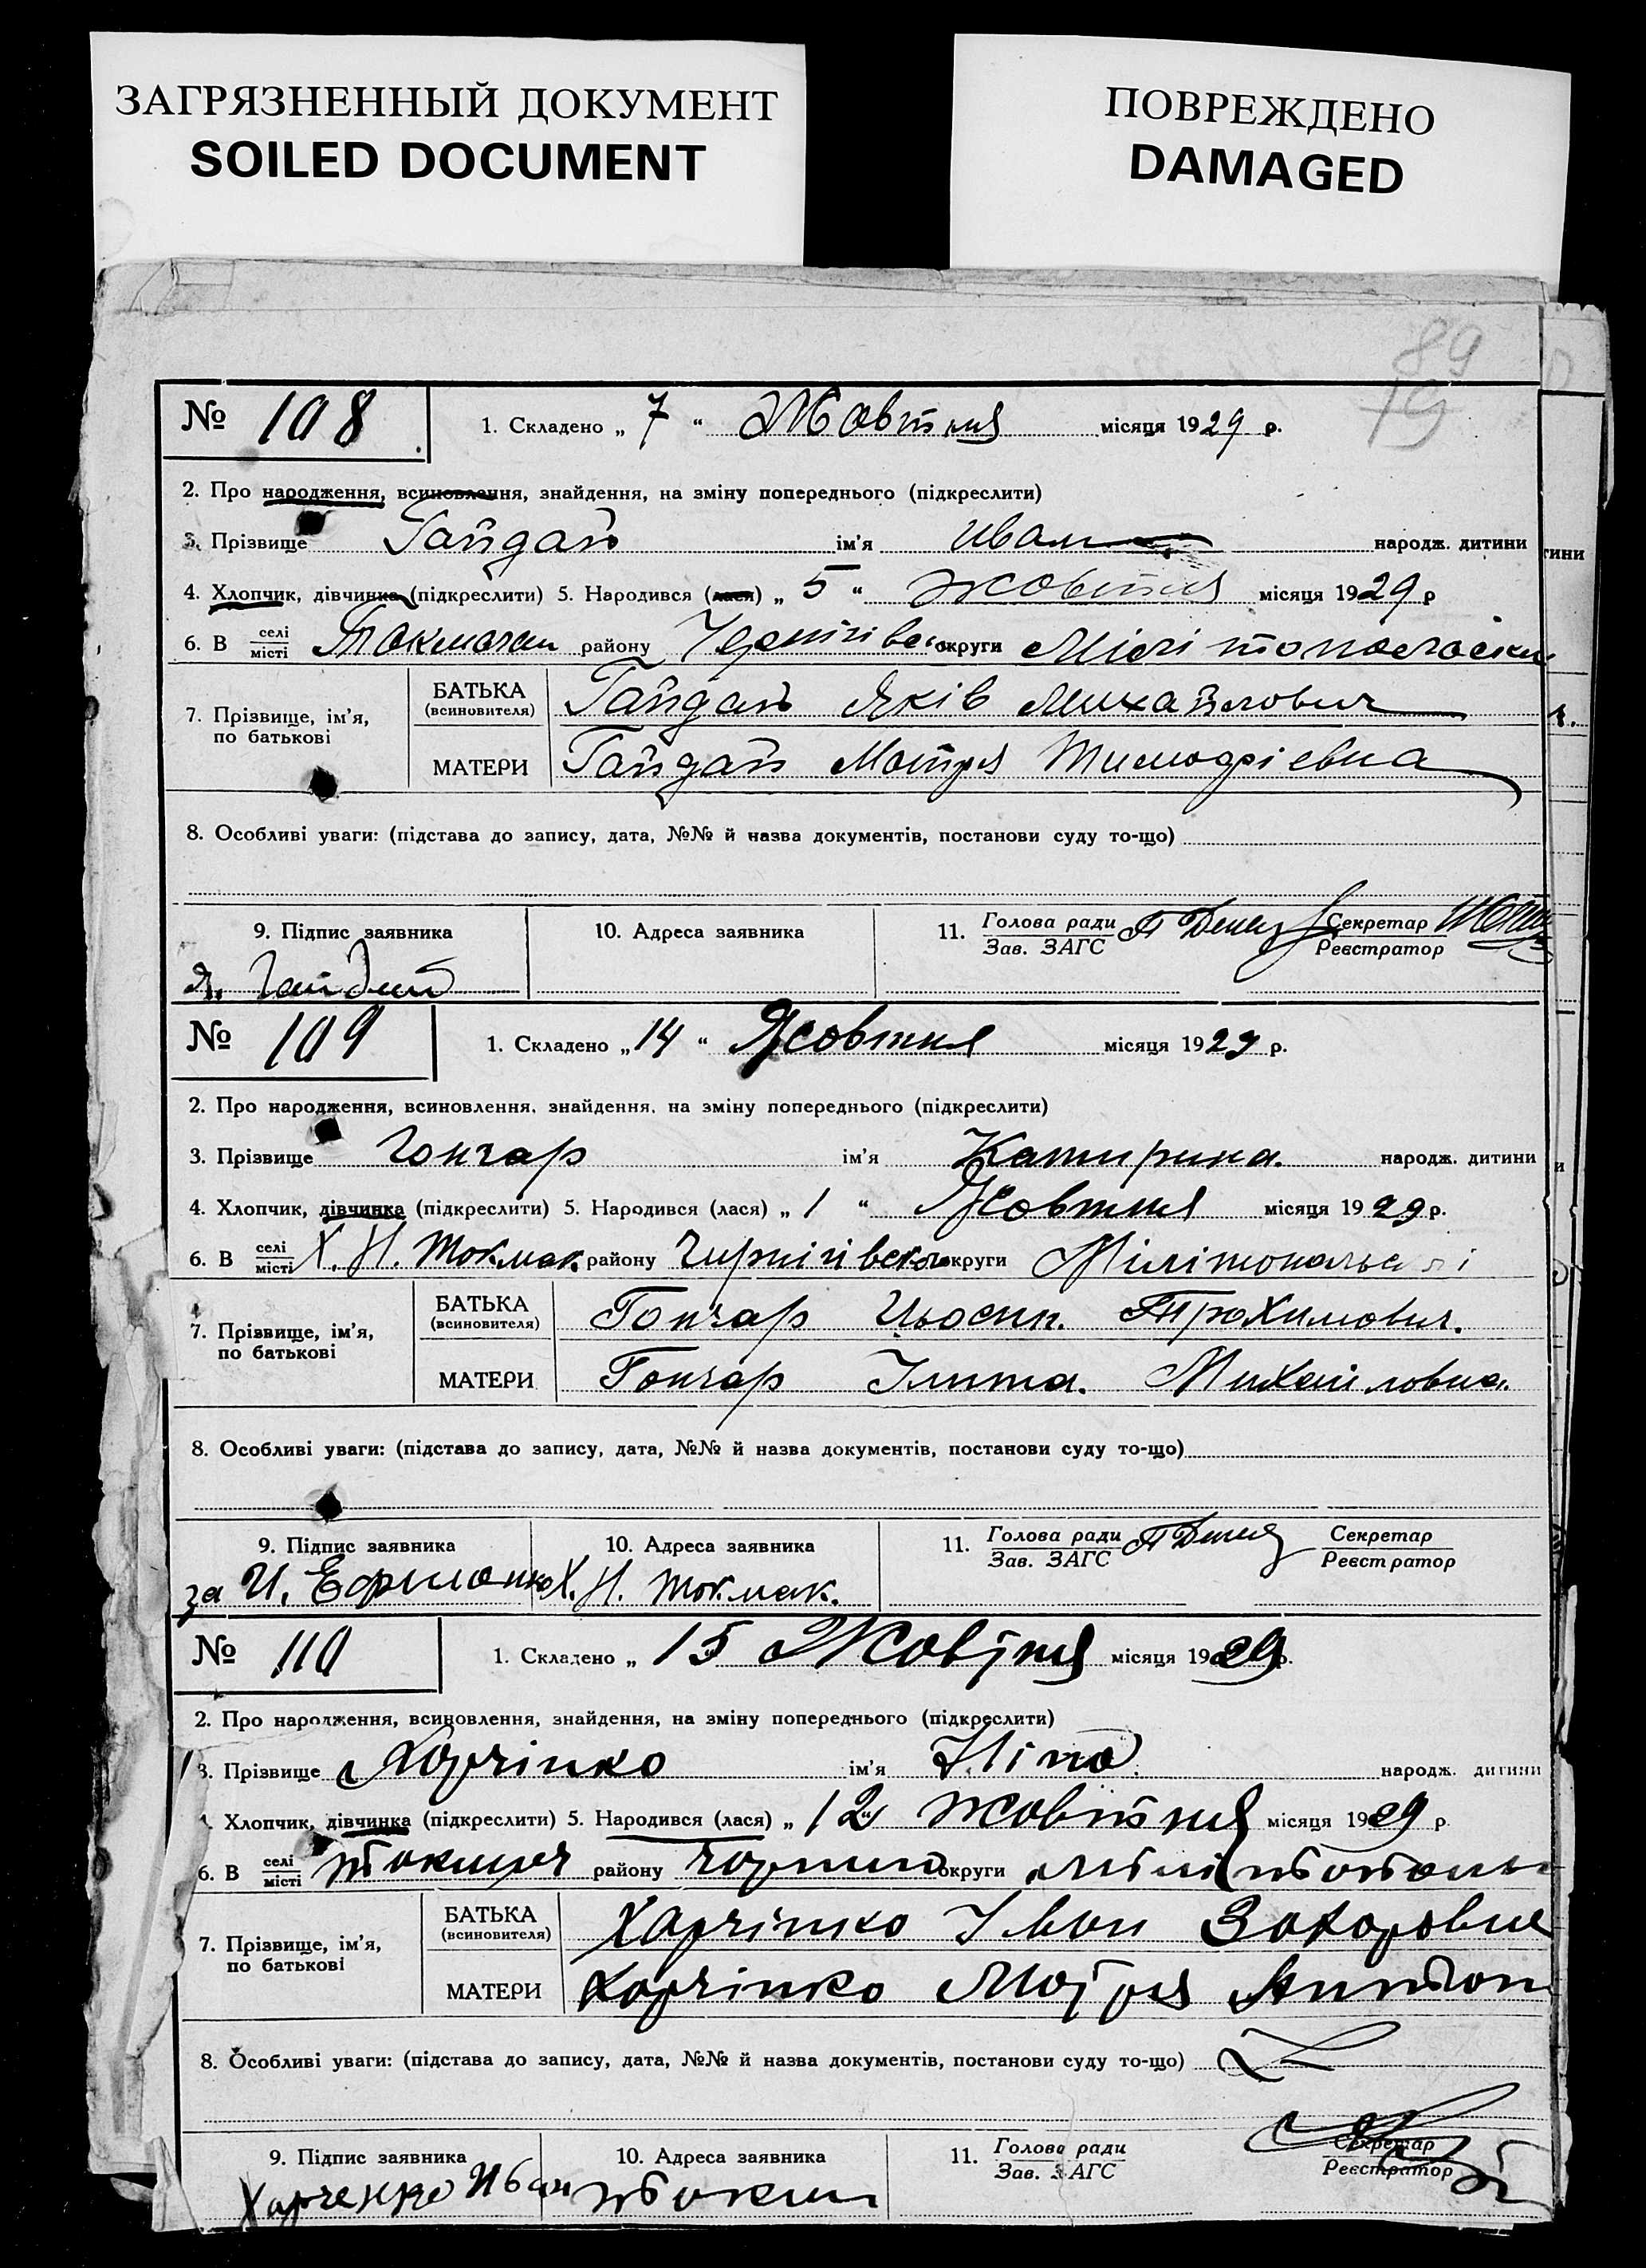 ЗАГРЯЗНЕННЫЙ ДОКУМЕНТ
SOILED DOCUMENT
ПОВРЕЖДЕНО
DAMAGED
89
19
№ 108 1. Складено „ 7 “ Жовтня місяця 1929 р.
2. Про народження, всиновлення, знайдення, на зміну попереднього (підкреслити)
3. Прізвище Гайдай ім'я Иван народж. дитини
4. Хлопчик, дівчинка (підкреслити) 5. Народився (лася) „ 5 “ жовтня місяця 1929 р
6. В селі/місті Токмачан району округи
7. Прізвище, ім'я, по батькові
БАТЬКА (всиновителя) Гайдай Яків Михайлович
МАТЕРИ Гайдай Мотря Тимофіевна
8. Особливі уваги: (підстава до запису, дата, №№ й назва документів, постанови суду то-що)
9. Підпис заявника 10. Адреса заявника 11. Голова ради/Зав. ЗАГС Секретар/Реєстратор
Я. Гайдай
№ 109 1. Складено „ 14 “ Жовтня місяця 1929 р.
2. Про народження, всиновлення, знайдення, на зміну попереднього (підкреслити)
3. Прізвище Гончар ім'я Катирина. народж. дитини
4. Хлопчик, дівчинка (підкреслити) 5. Народився (лася) „ 1 “ Жовтня місяця 1929 р.
6. В селі/місті Х. Н. Токмак. району округи
7. Прізвище, ім'я, по батькові
БАТЬКА (всиновителя) Гончар Йосип. Трохимович.
МАТЕРИ Гончар Михайловна.
8. Особливі уваги: (підстава до запису, дата, №№ й назва документів, постанови суду то-що)
9. Підпис заявника 10. Адреса заявника 11. Голова ради/Зав. ЗАГС Секретар/Реєстратор
за И. Х. Н. Токмак.
№ 110 1. Складено „ 15 Жовтня місяця 1929 р.
2. Про народження, всиновлення, знайдення, на зміну попереднього (підкреслити)
3. Прізвище Харчінко ім'я Ніна народж. дитини
4. Хлопчик, дівчинка (підкреслити) 5. Народився (лася) „ 12 “ жовтня місяця 1929 р
6. В селі/місті району округи
7. Прізвище, ім'я, по батькові
БАТЬКА (всиновителя) Харчінко Іван
МАТЕРИ Харчінко Мотря Антон
8. Особливі уваги: (підстава до запису, дата, №№ й назва документів, постанови суду то-що)
9. Підпис заявника 10. Адреса заявника 11. Голова ради/Зав. ЗАГС Секретар/Реєстратор
Харченко Иван